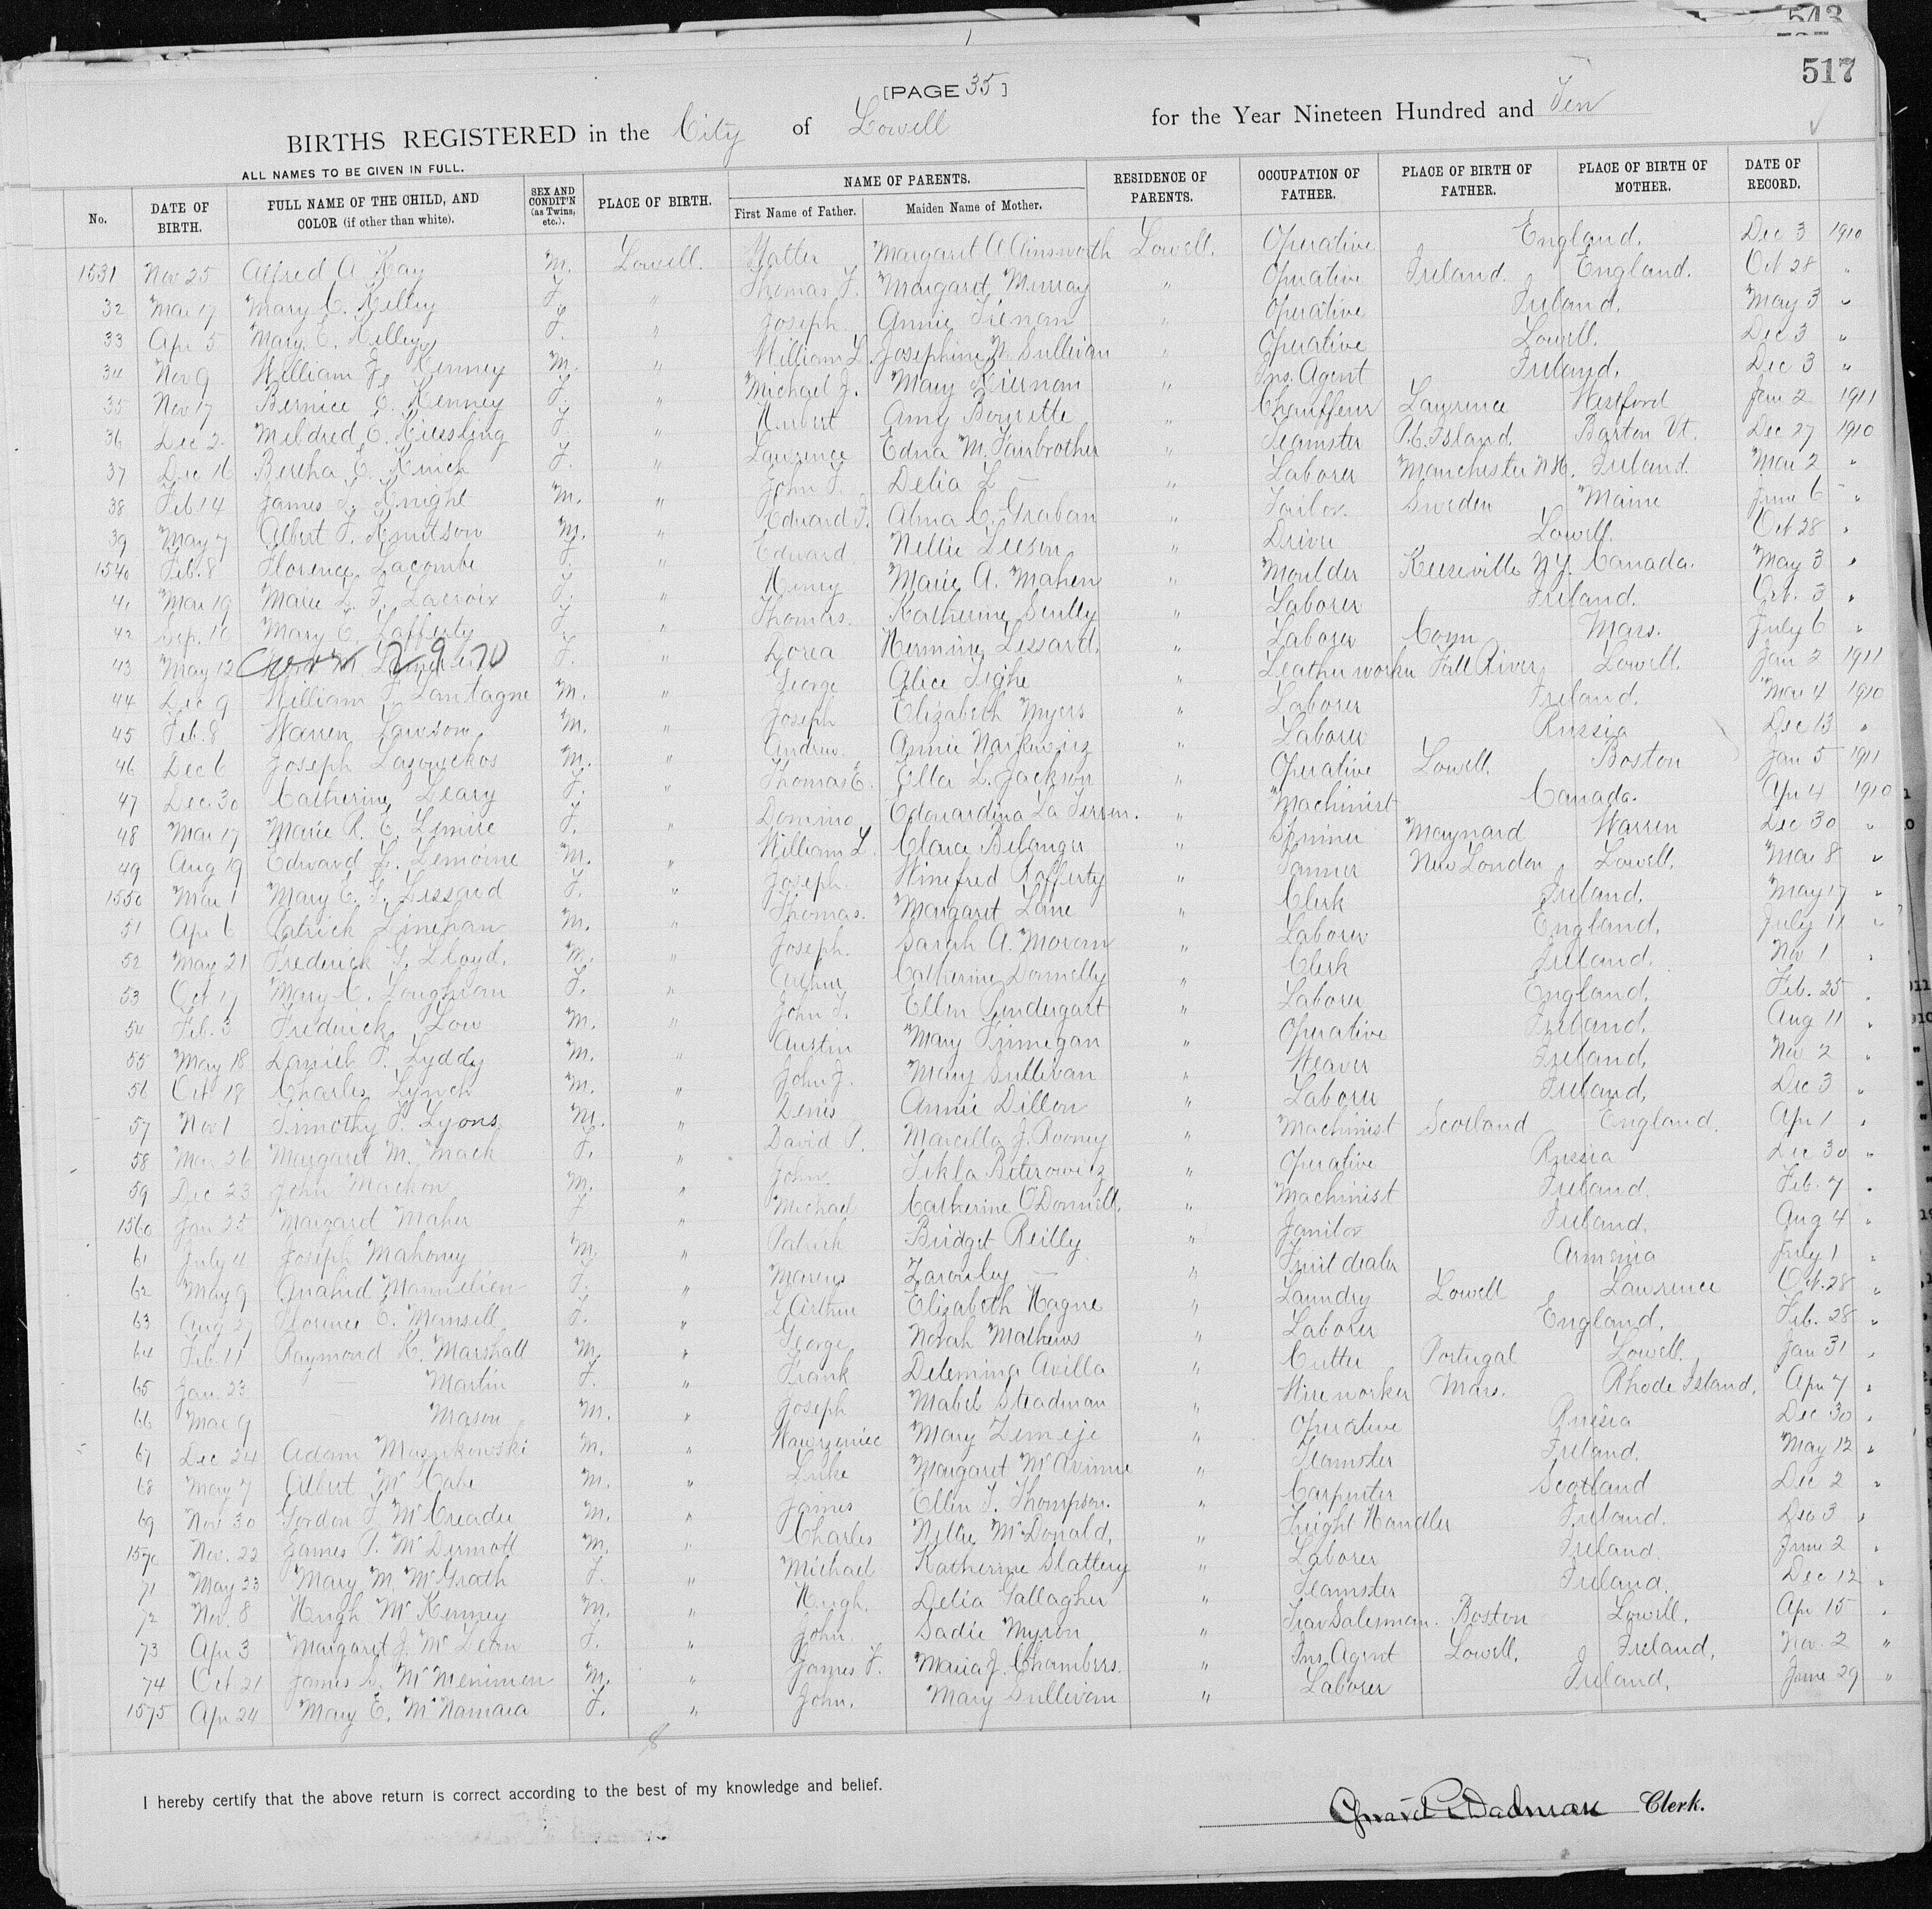 543
517
[PAGE 35]
BIRTHS REGISTERED in the City of Lowell for the Year Nineteen Hundred and Ten
ALL NAMES TO BE GIVEN IN FULL.
No. DATE OF BIRTH. FULL NAME OF THE CHILD, AND COLOR (if other than white). SEX AND CONDIT'N (as Twins, etc.). PLACE OF BIRTH. NAME OF PARENTS. First Name of Father. Maiden Name of Mother. RESIDENCE OF PARENTS. OCCUPATION OF FATHER. PLACE OF BIRTH OF FATHER. PLACE OF BIRTH OF MOTHER. DATE OF RECORD.
1531 Nov 25 Alfred A Kay M. Lowell. Margaret A Ainsworth Lowell. Operative England. Dec 3 1910
32 Mar 17 Mary C. Kelley F. " Thomas F. Margaret Murray " Operative Ireland. England. Oct 28 "
33 Apr 5 Mary E. Kelley F. " Joseph Annie Tiernan " Operative Ireland. May 3 "
34 Nov 9 William F. Kenney M. " William L. Josephine N. Sullivan " Operative Lowell. Dec 3 "
35 Nov 17 Bernice C. Kenney F. " Michael J. Mary Kiernan " Ins. Agent Ireland. Dec 3 "
36 Dec 2 Mildred E. Kiessling F. " Hubert Amy Bowrette " Chauffeur Lawrence Westford Jan 2 1911
37 Dec 16 Bertha E. Kinch F. " Lawrence Edna M. Fairbrother " Teamster P.E. Island. Barton Vt. Dec 27 1910
38 Feb 14 James L. Knight M. " John F. Delia L — " Laborer Manchester N.H. Ireland. Mar 2 "
39 May 7 Albert F. Knutson M. " Edward F. Alma C. Graham " Tailor. Sweden Maine June 6 "
1540 Feb. 8 Florence Lacombe F. " Edward Nellie Leeson " Driver Lowell. Oct 28 "
41 Mar 19 Marie L. F. Lacroix F. " Henry Marie A. Maheu " Moulder Keeseville N.Y. Canada. May 3 "
42 Sep. 16 Mary C. Lafferty F. " Thomas. Katherine Scully " Laborer Ireland. Oct. 3 "
43 May 12 F. " Dorea Hermine Lessard. " Laborer Conn Mass. July 6 "
44 Dec 9 William F. Lantagne M. " George Alice Tighe " Leather worker Fall River Lowell. Jan 2 1911
45 Feb. 8 Warren Lawson M. " Joseph Elizabeth Myers " Laborer Ireland. Mar 4 1910
46 Dec 6 Joseph Lazowckos M. " Andrew. Annie Narkewicz " Laborer Russia Dec 13 "
47 Dec. 30 Catherine Leary F. " Thomas E. Ella L. Jackson " Operative Lowell. Boston Jan 5 1911
48 Mar 17 Marie R. E. Lemire F. " Domino Edouardina La Terren. " Machinist Canada. Apr 4 1910
49 Aug 19 Edward L. Lemoine M. " William L. Clara Belanger " Spinner Maynard Warren Dec 30 "
1550 Mar 1 Mary E. G. Lessard F. " Joseph. Winifred Rafferty " Tanner New London Lowell. Mar 8 "
51 Apr 6 Patrick Linehan M. " Thomas. Margaret Lane " Clerk Ireland. May 17 "
52 May 21 Frederick G. Lloyd. M. " Joseph. Sarah A. Moran " Laborer England. July 11 "
53 Oct 17 Mary C. Loughran F. " Arthur Catherine Donnelly " Clerk Ireland. Nov 1 "
54 Feb. 3 Frederick Low M. " John T. Ellen Pendergast " Laborer England. Feb. 25 "
55 May 18 Daniel F. Lyddy M. " Austin Mary Finnegan " Operative Ireland. Aug 11 "
56 Oct 18 Charles Lynch M. " John J. Mary Sullivan " Weaver Ireland. Nov 2 "
57 Nov 1 Timothy F. Lyons M. " Denis Annie Dillon " Laborer Ireland. Dec 3 "
58 Mar 26 Margaret M. Mack F. " David P. Marcella J. Rooney " Machinist Scotland England. Apr 1 "
59 Dec 23 John Mackon M. " John. Tekla Biterowicz " Operative Russia Dec 30 "
1560 Jan 25 Margard Maher F " Michael Catherine O'Donnell. " Machinist Ireland. Feb. 7 "
61 July 4 Joseph Mahoney M. " Patrick Bridget Reilly " Janitor Ireland. Aug 4 "
62 May 9 Anahid Mannelien F. " Marcus Zarouley — " Fruit dealer Armenia July 1 "
63 Aug 27 Florence E. Mansell F. " L Arthur Elizabeth Hague " Laundry Lowell Lawrence Oct. 28 "
64 Feb. 11 Raymond K. Marshall M. " George Norah Mathews " Laborer England. Feb. 28 "
65 Jan. 23 — Martin F. " Frank Delemina Avilla " Cutter Portugal Lowell. Jan 31 "
66 Mar 9 — Mason M. " Joseph Mabel Steadman " Wire worker Mass. Rhode Island. Apr 7 "
67 Dec 24 Adam Masnkowski M. " Wawrzeniec Mary Zemeje " Operative Russia Dec 30 "
68 May 7 Albert McCabe M. " Luke Margaret McAvinnue " Teamster Ireland. May 12 "
69 Nov 30 Gordon F. McCreadie M. " James Ellen T. Thompson. " Carpenter Scotland Dec 2 "
1570 Nov. 22 James P. McDermott M. " Charles Nellie McDonald, " Freight Handler Ireland. Dec 3 "
71 May 23 Mary M. McGrath F. " Michael Katherine Slattery " Laborer Ireland. June 2 "
72 Nov. 8 Hugh McKenney M. " Hugh. Delia Gallagher " Teamster Ireland. Dec 12 "
73 Apr 3 Margaret J. McLean F. " John. Sadie Myron " Trav Salesman. Boston Lowell. Apr 15 "
74 Oct 21 James S. McMenimen M. " James F. Maria J. Chambers. " Ins. Agent Lowell. Ireland. Nov. 2 "
1575 Apr 24 Mary E. McNamara F. " John. Mary Sullivan " Laborer Ireland. June 29 "
8
I hereby certify that the above return is correct according to the best of my knowledge and belief.
Dadman Clerk.